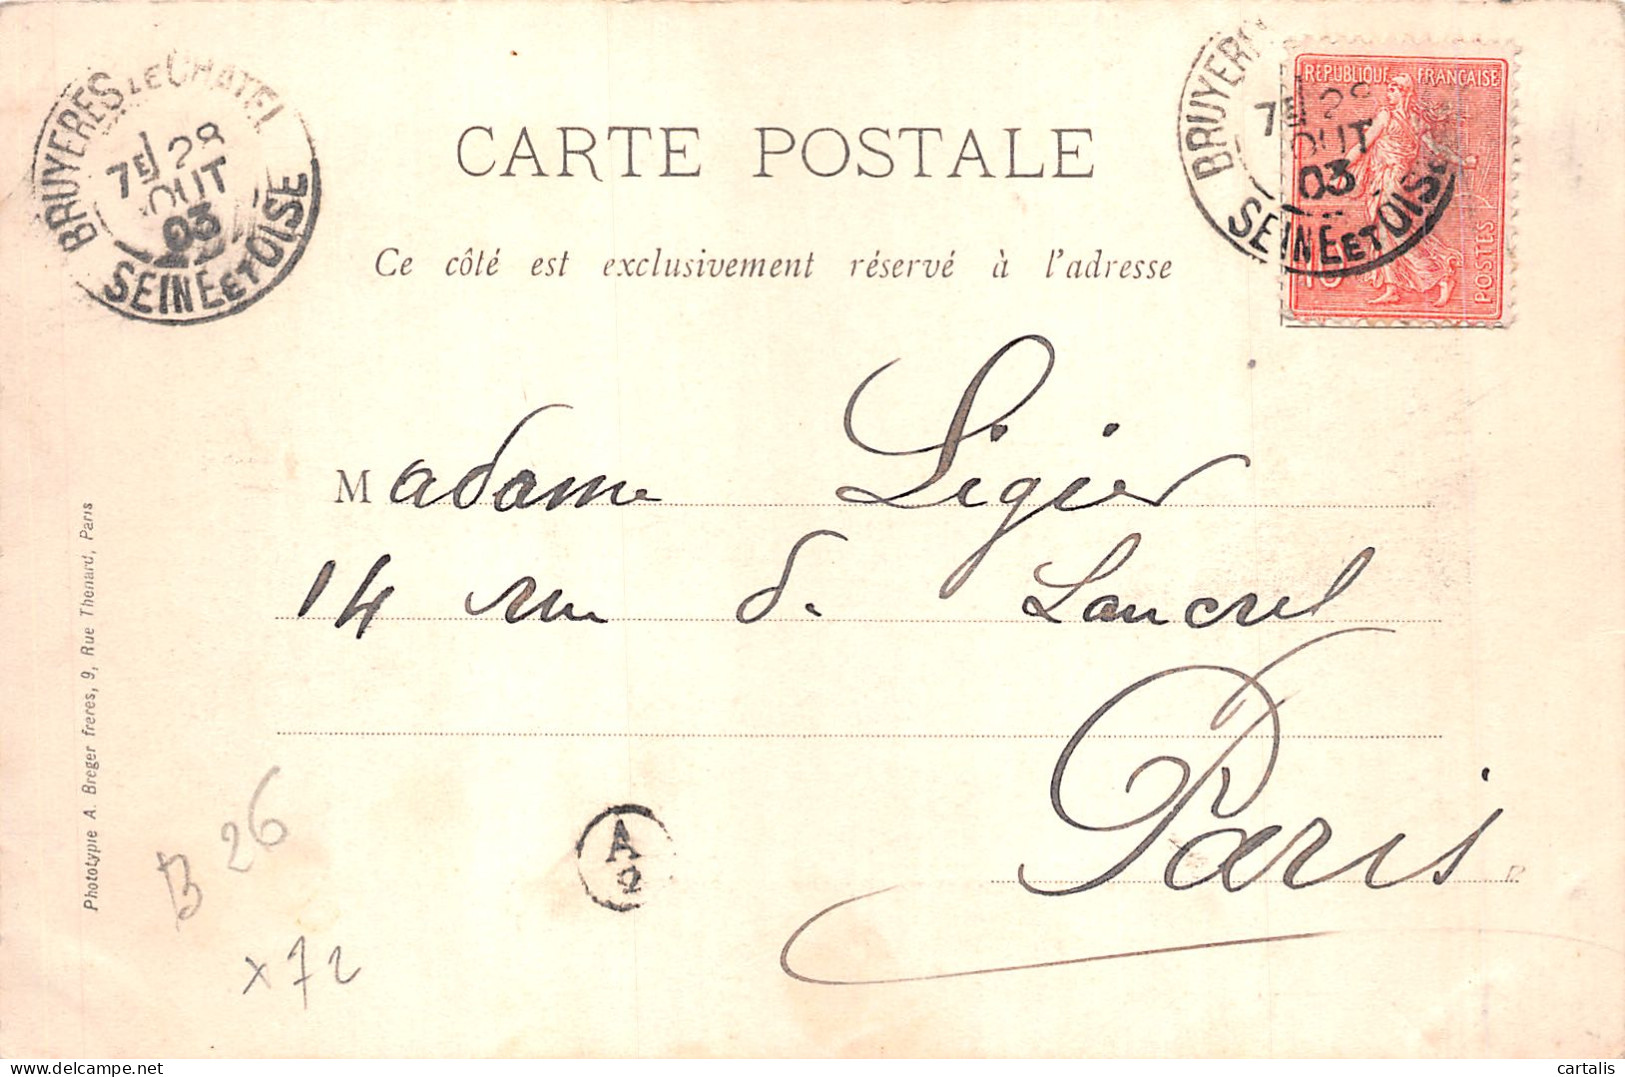 BRUYERES LE CHATEL
7E 28
AOUT
03
SEINE ET OISE
CARTE POSTALE
BRUYERES
7E 28
AOUT
03
SEINE ET OISE
REPUBLIQUE FRANÇAISE
10
POSTES
Ce côté est exclusivement réservé à l'adresse
Madame Ligier
14 rue de Lancrel
Paris
Phototypie A. Breger freres, 9, Rue Thenard, Paris
B 26
x72
A
2
cartalis